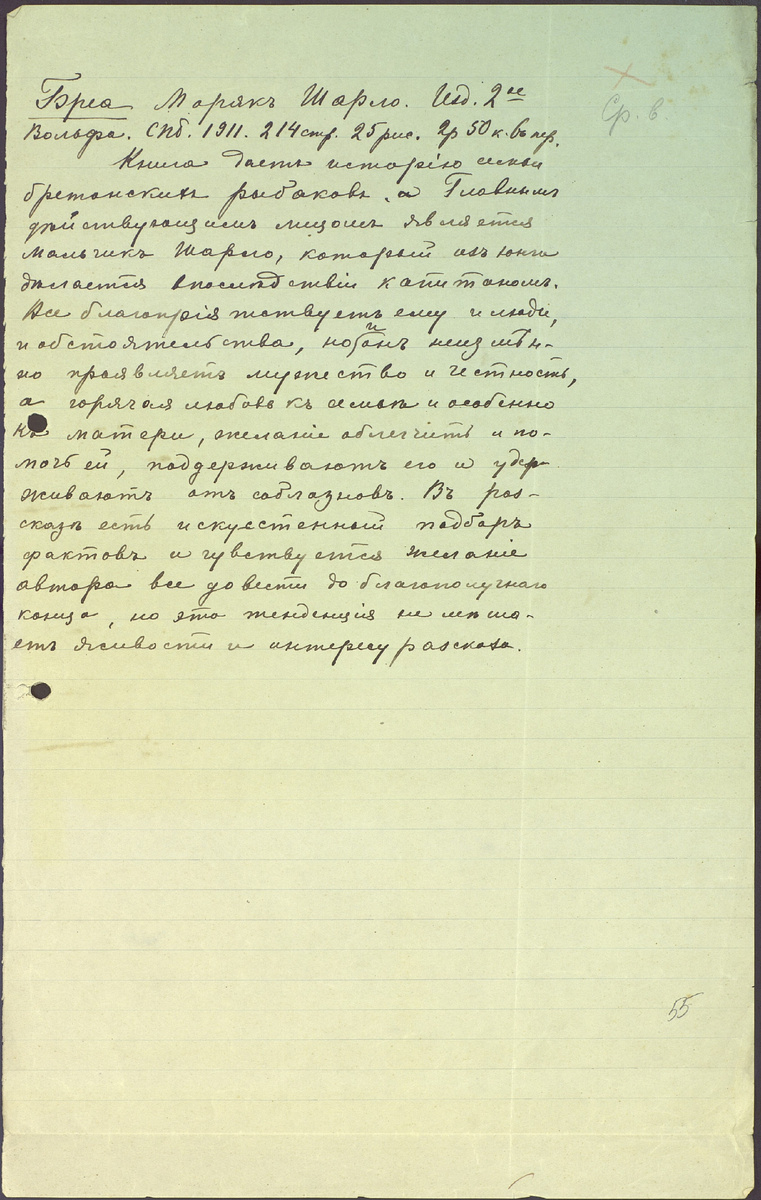 Бреа Морякъ Шарло. Изд. 2ое
Вольфа. СПб. 1911. 214 стр. 25 рис. 2р 50 к. въ пер.
Ср. в.
Книга даетъ исторію семьи
бретонскихъ рыбаковъ, а Главнымъ
дѣйствующимъ лицомъ является
мальчикъ Шарло, который изъ юнги
дѣлается впослѣдствіи капитаномъ.
Все благопріятствуетъ ему и люди,
и обстоятельства, но и онъ неизмѣн-
но проявляетъ мужество и честность,
а горячая любовь къ семьѣ и особенно
къ матери, желаніе облегчить и по-
мочь ей, поддерживаютъ его и удер-
живаютъ отъ соблазновъ. Въ раз-
сказѣ есть искуственный подборъ
фактовъ и чувствуется желаніе
автора все довести до благополучнаго
конца, но эта тенденція не мѣша-
етъ живости и интересу разсказа.
55